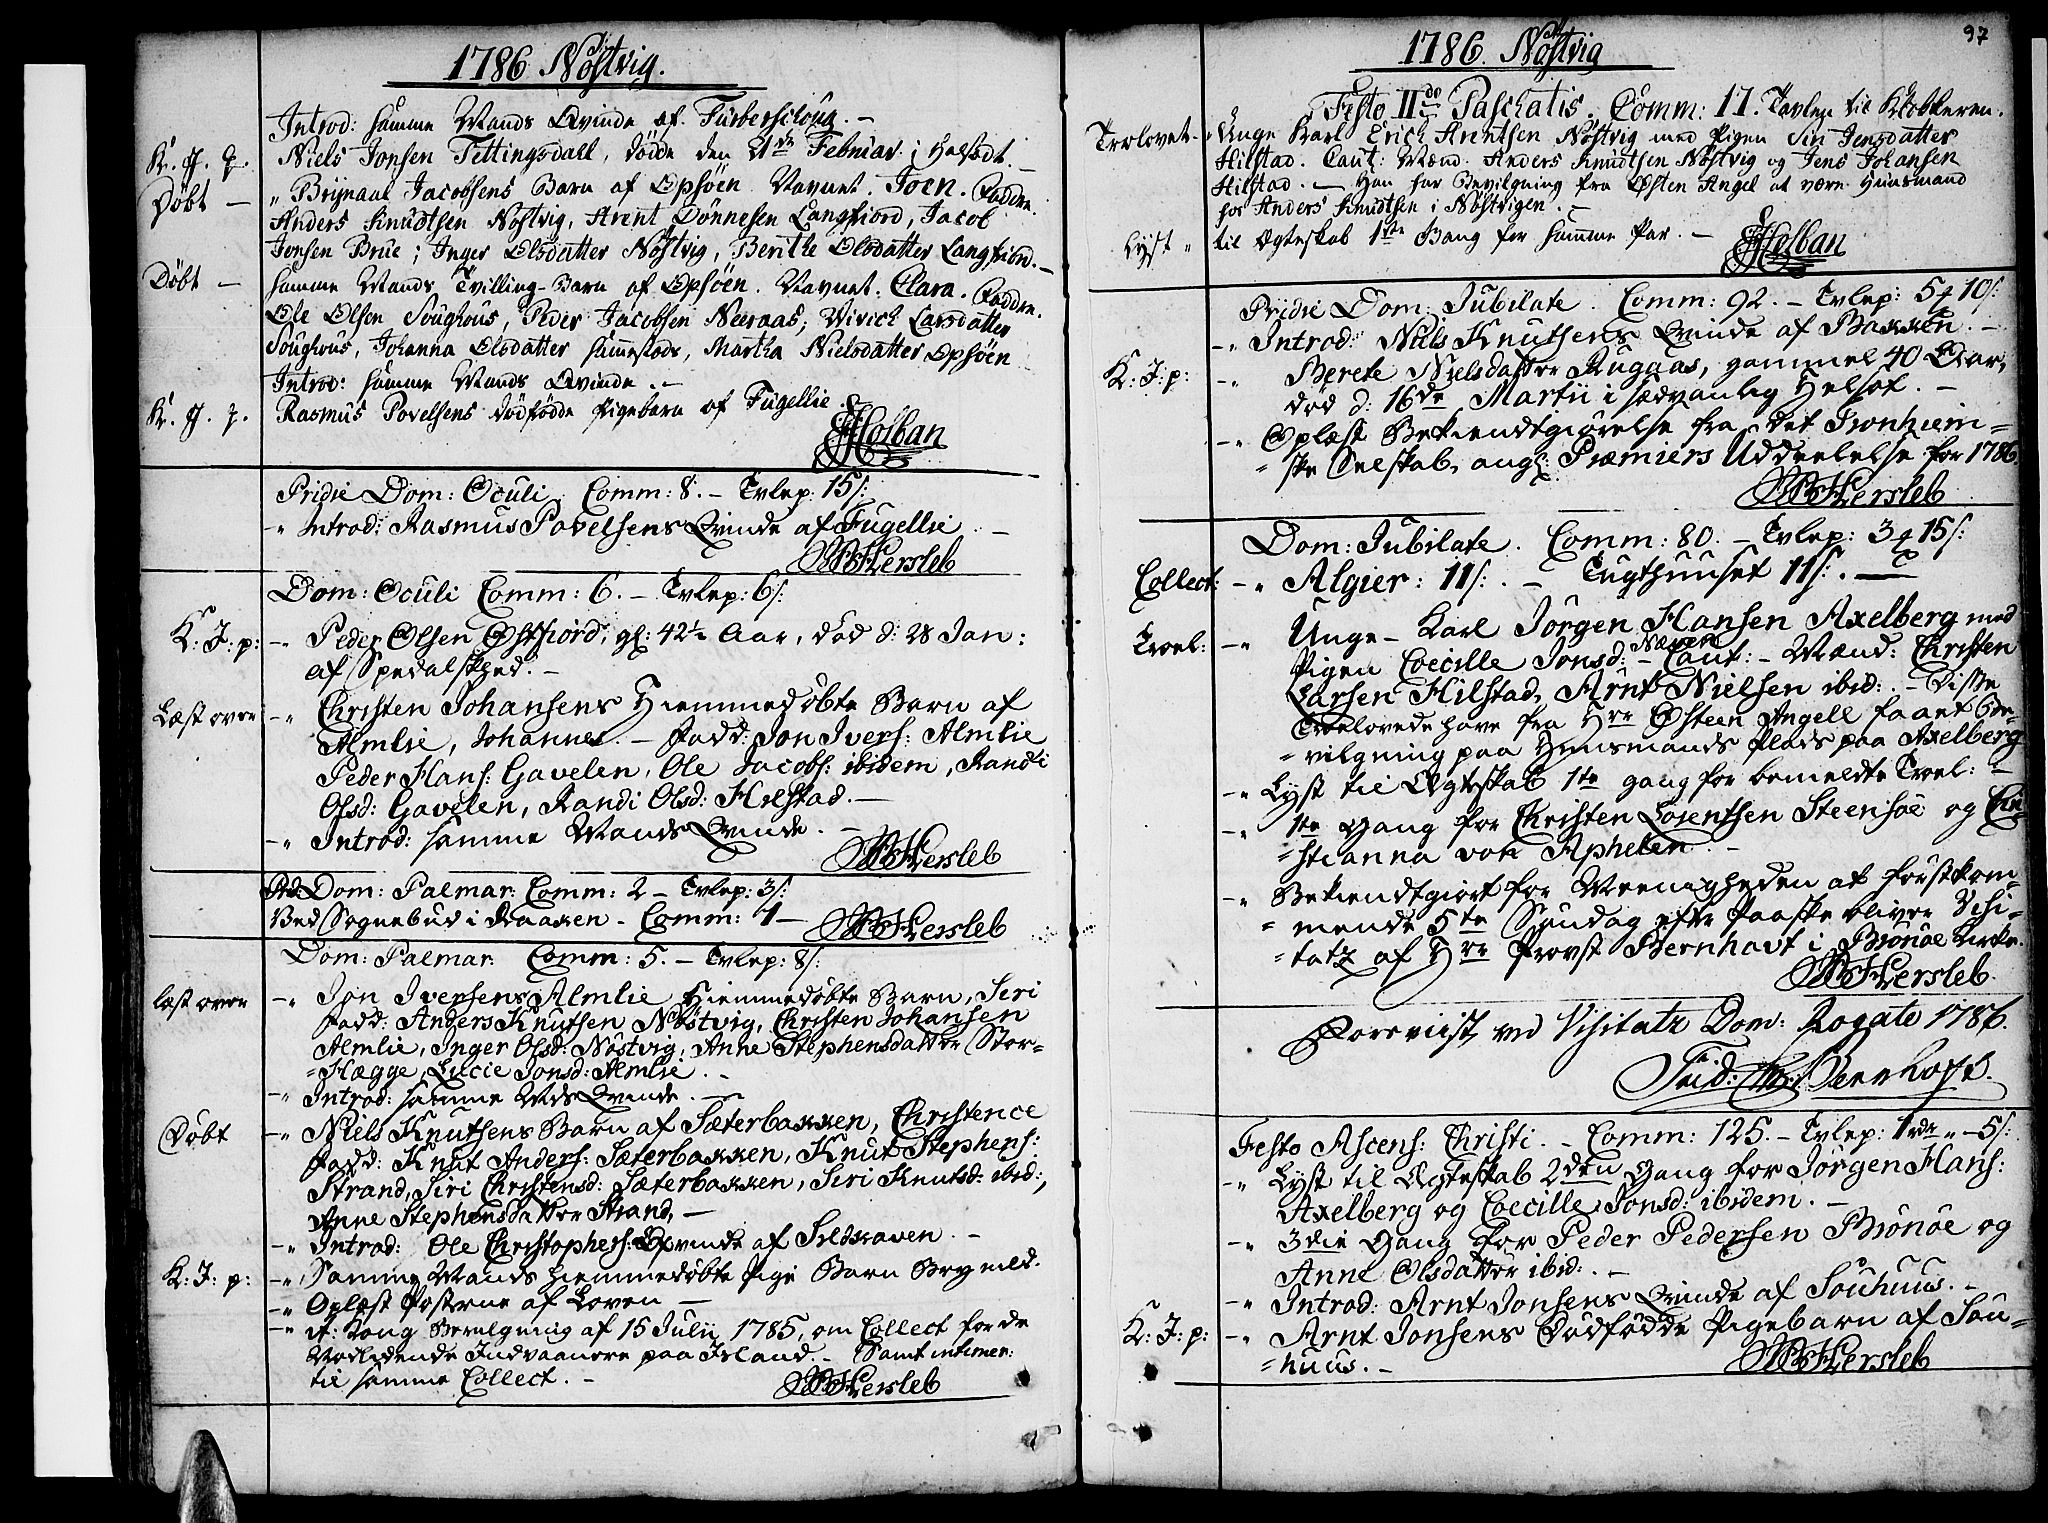 1786 Nöstvig.
Introd: samme Mands Qvinde af Furberschoug. –
K. J. p. Niels Jonsen Tettingsdall, döde den 21de Februar. i Helsodt. –
Döbt – " Brynaal Jacobsens Barn af Opsöen. Navnet. Joen. Faddere.
Anders Knudtsen Nöstvig, Arent Dönnesen Langfiord, Jacob
Jonsen Brue; Inger Olsdatter Nöstvig, Berithe Olsdatter Langfiord. –
Döbt – samme Mands Tvilling-Barn af Opsöen. Navnet: Clara. Faddere.
Ole Olsen Soughous, Peder Jacobsen Neeraas, Vivich Larsdatter
Soughous, Johanna Olsdatter sammestods, Martha Nielsdatter Opsöen
Introd: samme Mands Qvinde. –
K. J. p. Rasmus Povelsens dödfödde Pigebarn af Fugellie
Holban
Pridie Dom: Oculi. Comm: 8. – Tvlep: 15 s:
" Introd: Rasmus Povelsens Qvinde af Fugellie. –
Hersleb
Dom: Oculi Comm: 6. – Tvlep: 6 s:
K: J: p: –" Peder Olsen Østfiord, gl: 42½ Aar, död d: 28 Jan:
af Spedalskhed. –
Læst over –" Christen Johansens Hiemmedöbte Barn af
Almlie, Johannes. – Fadd: Jon Ivers: Almlie
Peder Hans: Gavelen, Ole Jacobs: ibidem, Randi
Olsd: Gavelen, Randi Olsd: Hilstad. –
–" Introd: samme Mands Qvinde. –
Hersleb
Prid: Dom: Palmar: Comm: 2 – Tvlep: 3 s:
Ved Sognebud i Kraaken – Comm: 1 – Hersleb
Dom: Palmar: Comm: 5. – Tvlep: 8 s:
læst over –" Jon Iversens Almlie Hiemmedöbte Barn, Siri
Fadd: Anders Knutsen Nöstvig, Christen Johansen
Almlie, Inger Olsd: Nöstvig, Anne Stephensdatter Stor-
=Hægge, Lucie Jonsd: Almlie. –
–" Introd: samme Mds Qvinde. –
Döbt –" Niels Knutsens Barn af Sæterbakken, Christence
Fadd: Knut Anders: Sæterbakken, Knut Stephens:
Strand, Siri Christensd: Sæterbakken, Siri Knutsd: ibid:,
Anne Stephensdatter Strand, –
–" Introd: Ole Christophers: Qvinde af Sildhaven. –
K: J: p: –" Samme Mands hiemmedöbte Pige Barn Brynild.
–" Oplæst Posterne af Loven –
–" it: Kong Bevilgning af 15 Julii 1785, om Collect for de
Nødlidende Indvaanere paa Island. – Samt intimer:
til samme Collect. –
Hersleb
97
1786. Nöstvig
Festo IIdo Paschatis. Comm: 17. Tavlep til Klokkeren.
Trolovet – " Unge Karl Erich Arentsen Nöstvig med Pigen Siri Jensdatter
Hilstad. Caut: Mænd. Anders Knudtsen Nöstvig og Jens Johansen
Hilstad. – Han har Bevilgning fra Østen Angel at være Huusmand
hos Anders Knudtsen i Nöstvigen. –
Lyst " til Ægteskab 1ste Gang for samme Par. –
Holban
Pridie Dom: Jubilate. Comm: 92. – Tvlep: 5 10 s:
–" Introd: Niels Knutsens Qvinde af Bakken. –
K: J: p: –" Berete Nielsdatter Rugaas, gammel 40 Aar,
död d: 16de Martii i sædvanlig Helsot. –
–" Oplæst Bekiendtgiørelse fra det Tronhiem-
=ske Selskab, angl: Præmiers Uddeelelse for 1786.
Hersleb
Dom: Jubilate. Comm: 80. – Tvlep: 3 15 s:
Collect: –" Algier: 11 s:. – Tugthuuset 11 s:. –
Troel: –" Unge-Karl Jörgen Hansen Axelberg med
Pigen Coecille Jonsd: Næven – Caut: – Mænd: Christen
Larsen Hilstad, Arnt Nielsen ibid:. – Disse
Troelovede have fra Hrr Østeen Angell faaet Be-
=vilgning paa Huusmands Plads paa Axelberg
–" Lyst til Ægteskab 1te gang for bemeldte Troel: –
–" 1te Gang for Christen Lorentsen Steensöe og Chri-
=stianna von Aphelen. –
–" Bekiendtgiort for Meenigheden at förstkom-
=mende 5te Söndag efter Paaske bliver Visi-
=tatz af Hrr Provst Bernhoft i Brönöe Kirke.
Hersleb.
Foreviist ved Visitatz Dom: Rogate 1786.
Frid: Chr: Bernhoft.
Festo Ascens: Christi. – Comm: 125. – Tvlep: 1 rdr " – 5 s:
–" Lyst til Ægteskab 2den Gang for Jörgen Hans:
Axelberg og Coecille Jonsd: ibidem. –
–" 3die Gang for Peder Pedersen Brönöe og
Anne Olsdatter ibid:. –
–" Introd: Arnt Jonsens Qvinde af Souhuus. –
K: J: p: –" Arnt Jonsens Dödfödde Pigebarn af Sou-
=huus. –
Hersleb